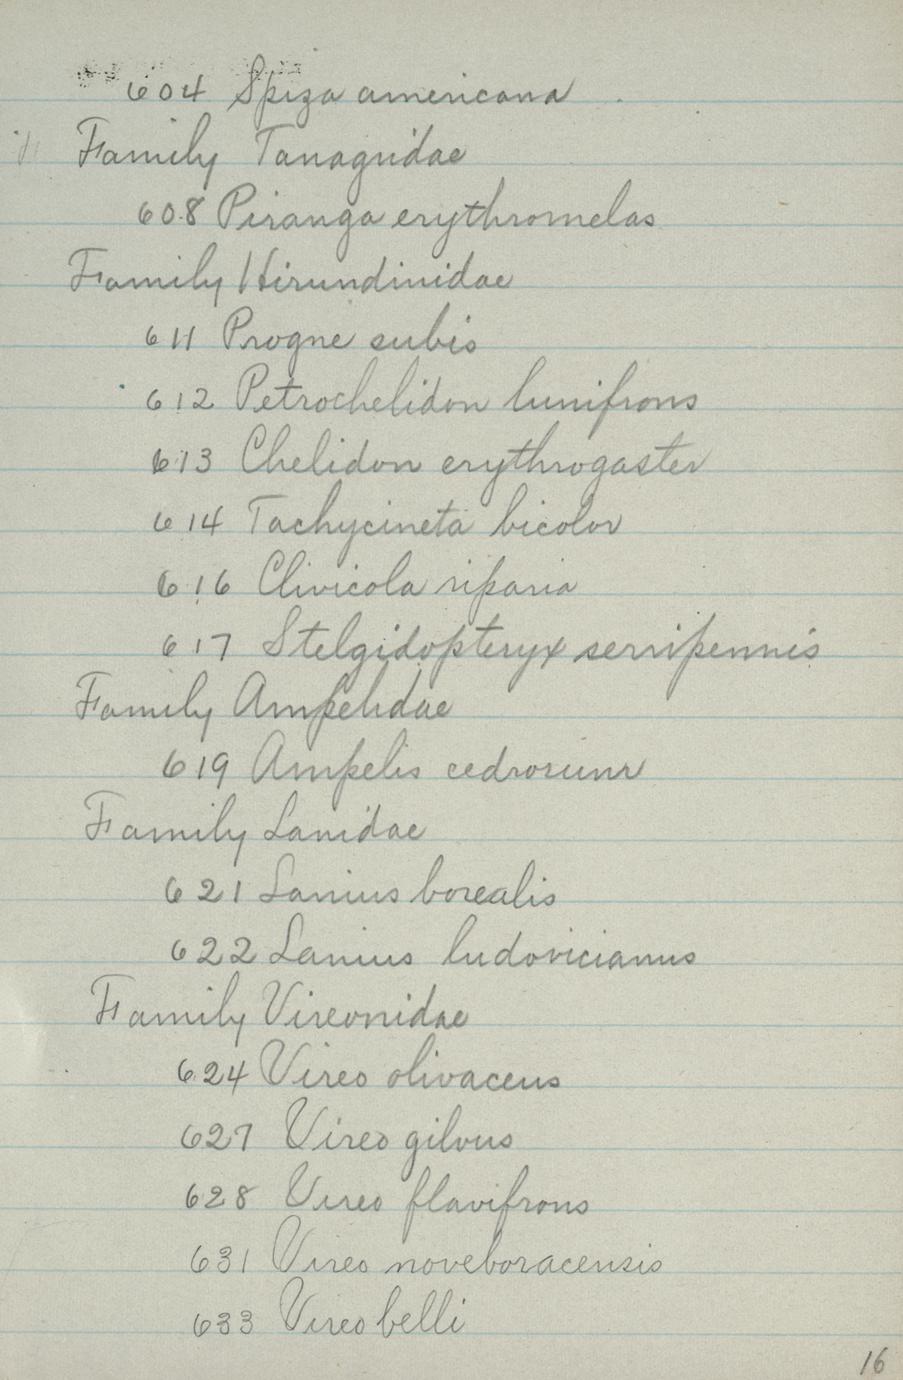 604 Spiza americana
Family Tanagridae
608 Piranga erythromelas
Family Hirundinidae
611 Progne subis
612 Petrochelidon lunifrons
613 Chelidon erythrogaster
614 Tachycineta bicolor
616 Clivicola riparia
617 Stelgidopteryx serripennis
Family Ampelidae
619 Ampelis cedrorum
Family Lanidae
621 Lanius borealis
622 Lanius ludovicianus
Family Vireonidae
624 Vireo olivaceus
627 Vireo gilvus
628 Vireo flavifrons
631 Vireo noveboracensis
633 Vireo belli
16